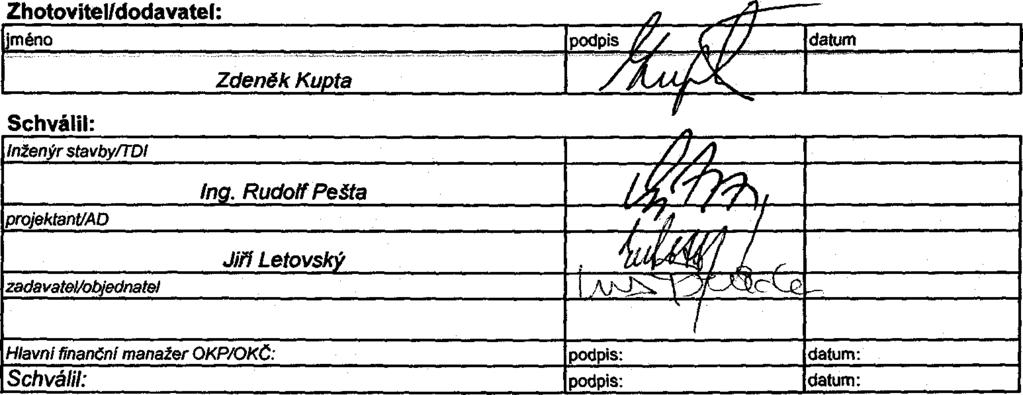 Zhotovitel/dodavatel:
jméno podpis datum
Zdeněk Kupta
Schválil:
Inženýr stavby/TDI
Ing. Rudolf Pešta
projektant/AD
Jiří Letovský
zadavatel/objednatel
Hlavní finanční manažer OKP/OKČ: podpis: datum:
Schválil: podpis: datum: